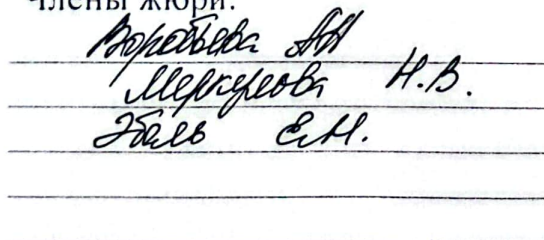 Члены жюри:
Воробьева АН
Меркулова Н.В.
Эбель Е.Н.